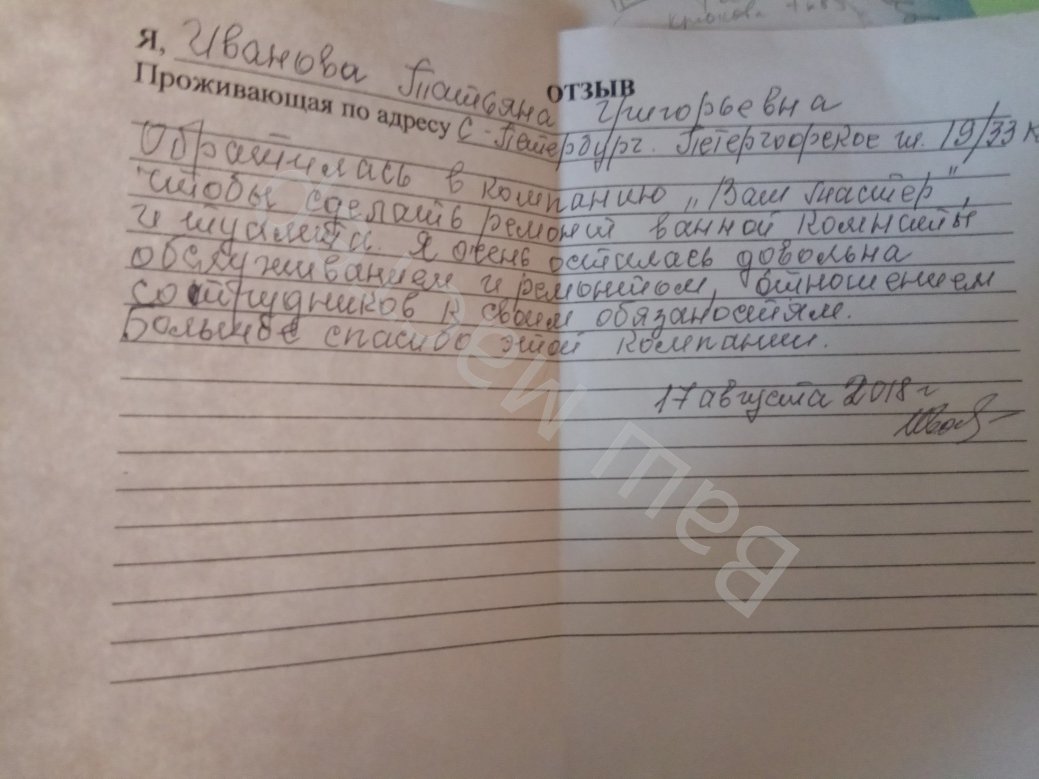 ОТЗЫВ
Я, Иванова Татьяна Григорьевна
Проживающая по адресу С-Петербург. Петергофское ш. 19/33 к
Обратилась в компанию „Ваш мастер",
чтобы сделать ремонт ванной комнаты
и туалета. Я очень осталась довольна
обслуживанием и ремонтом, отношением
сотрудников к своим обязаностям.
Большое спасибо этой компании.
17 августа 2018 г
Ваш мастер